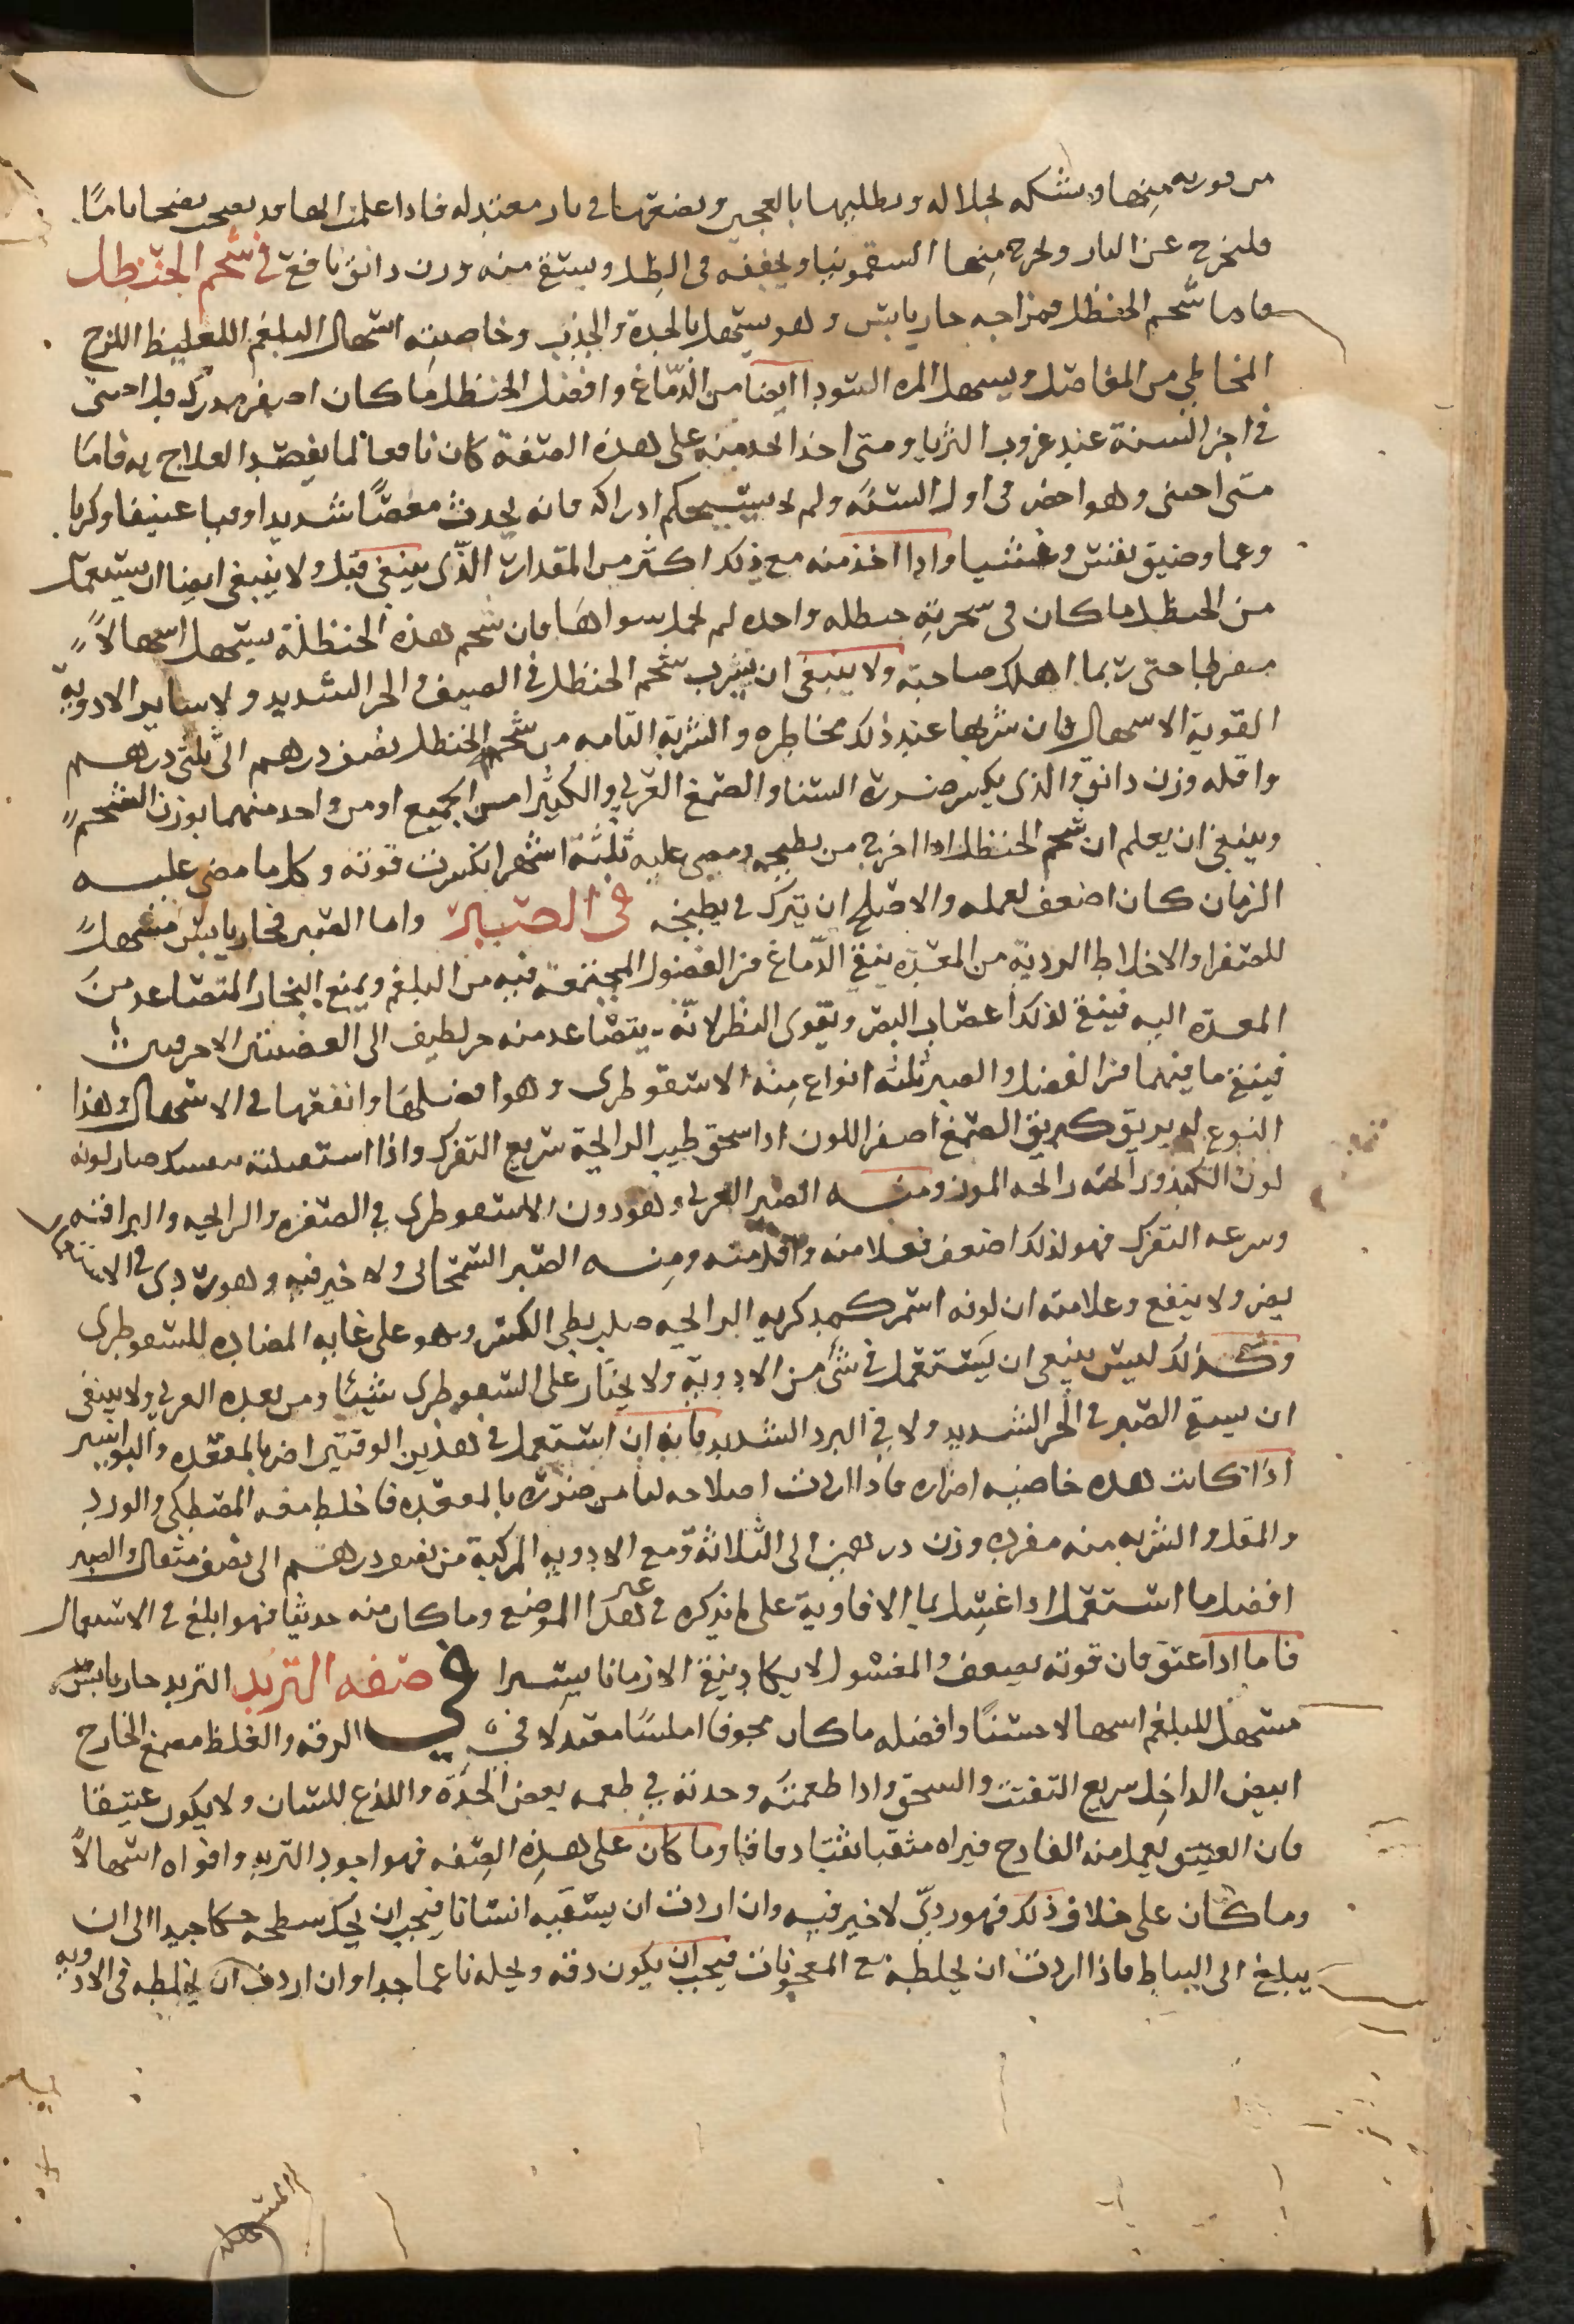 منها وشكه بخلاله ويطليها بالعجين ويضعها فى نار معتدله فاذا علمت انها قد نضجت نضجا تاما
فليخرج عن النار ويخرج منها السقمونيا ويجففه فى الظل ويستقى منه وزن دانق نافع فى شحم الحنظل
فاما شحم الحنظل فمزاجه حار يابس وهو يسهل بالحدة والجذب وخاصيته اسهال البلغم الغليظ اللزج
المخاطى من المفاصل ويسهل المره السودا ايضا من الدماغ وافضل الحنظل ما كان اصفر مدرك قد اجتنى
فى اخر السنة عند غروب الثريا ومتى اخذ احد منه على هذه الصفة كان نافعا لما يقصد العلاج به فاما
متى اجتنى وهو اخضر فى اول السنه ولم يستحكم ادراكه فانه يحدث مغصا شديدا وقيا عنيفا وكربا
وغما وضيق نفس وغشيا واذا اخذ منه مع ذلك اكثر من المقدار الذى ينبغى قتل ولا ينبغى ايضا ان يستعمل
من الحنظل ما كان فى شجرته حنظله واحده لم تحمل سواها فان شحم هذه الحنظلة يسهل اسهالا
مفرطا حتى ربما اهلك صاحبه ولا ينبغى ان يشرب شحم الحنظل فى الصيف والحر الشديد ولا ساير الادوية
القوية الاسهال فان شربها عند ذلك مخاطره والشربة التامه من شحم الحنظل نصف درهم الى ثلثى درهم
واقله وزن دانق والذى يكسر ضرره النشا والصمغ العربى والكثيرا من الجميع او من واحد منهما بوزن الشحم
وينبغى ان يعلم ان شحم الحنظل اذا اخرج من بطيخه ومضى عليه ثلثة اشهر انكسرت قوته وكلما مضى عليه
الزمان كان اضعف لعمله والاصلح ان يترك فى بطيخه فى الصبر واما الصبر فحار يابس مسهل
للصفرا والاخلاط الردية من المعدة ينقى الدماغ من الفضول المجتمعة فيه من البلغم ويمنع البخار المتصاعد من
المعدة اليه فينقى لذلك اعصاب البصر ويقوى النظر لانه يتصاعد منه حر لطيف الى العصبتين الاجوفين
فينقى ما فيهما من الفضل والصبر ثلثه انواع منه الاسقوطرى وهو افضلها وانفعها فى الاسهال وهذا
النوع له بريق كبريق الصمغ اصفر اللون اذا سحق طيب الرايحة سريع التفرك واذا استقبلته بنفسك صار لونه
لون الكبد ورائحته رائحه المر ومنه الصبر العربى وهو دون الاسقوطرى فى الصفره والرايحه والبراقيه
وسرعه التفرك فهو لذلك اضعف فعلا منه واقل منه ومنه الصبر السمحانى ولا خير فيه وهو ردى فى الاسهال
يضر ولا ينفع وعلامته ان لونه اسمر كمد كريه الرايحه صلب بطى الكسر وهو على غايه المضاده للسقوطرى
وكذلك ليس ينبغى ان يستعمل فى شى من الادوية ولا يختار على السقوطرى شيئا ومن بعده العربى ولا ينبغى
ان يسقى الصبر فى الحر الشديد ولا فى البرد الشديد فانه ان استعمل فى هذين الوقتين اضر بالمقعده والبواسير
اذا كانت هذه خاصيته اضراره فاذا اردت اصلاحه لتامن ضرره بالمقعده فاخلط معه المصطكى والورد
والمقل والشربه منه مفرده وزن درهمين الى الثلاثة ومع الادويه المركبة من نصف درهم الى نصف مثقال والصبر
افضل ما استعمل اذا غسل بما الافاوية على ما نذكره فى غير هذا الموضع وما كان منه حديثا فهو ابلغ فى الاسهال
فاما اذا عتق فان قوته تضعف والمغسول لا يكاد ينقى الا زمانا يسيرا فى صفه التربد التربد حار يابس
مسهل للبلغم اسهالا حسنا وافضله ما كان مجوفا املسا معتدلا فى الرقه والغلظ مصمغ الخارج
ابيض الداخل سريع التفتت والسحق واذا طعمته وجدته فى طعمه بعض الحدة واللذع للسان ولا يكون عتيقا
فان العتيق يعمل منه القادح فتراه مثقبا ثقبا دقاقا وما كان على هذه الصفه فهو اجود التربد واقواه اسهالا
وما كان على خلاف ذلك فهو ردى لا خير فيه وان اردت ان يستقيه انسانا فيجب ان يحك سطحه حكا جيدا الى ان
يبلغ الى البياض فاذا اردت ان تخلطه مع المعجونات فيجب ان يكون دقه ونخله ناعما جدا وان اردت ان تخلطه فى الادويه
المسهله